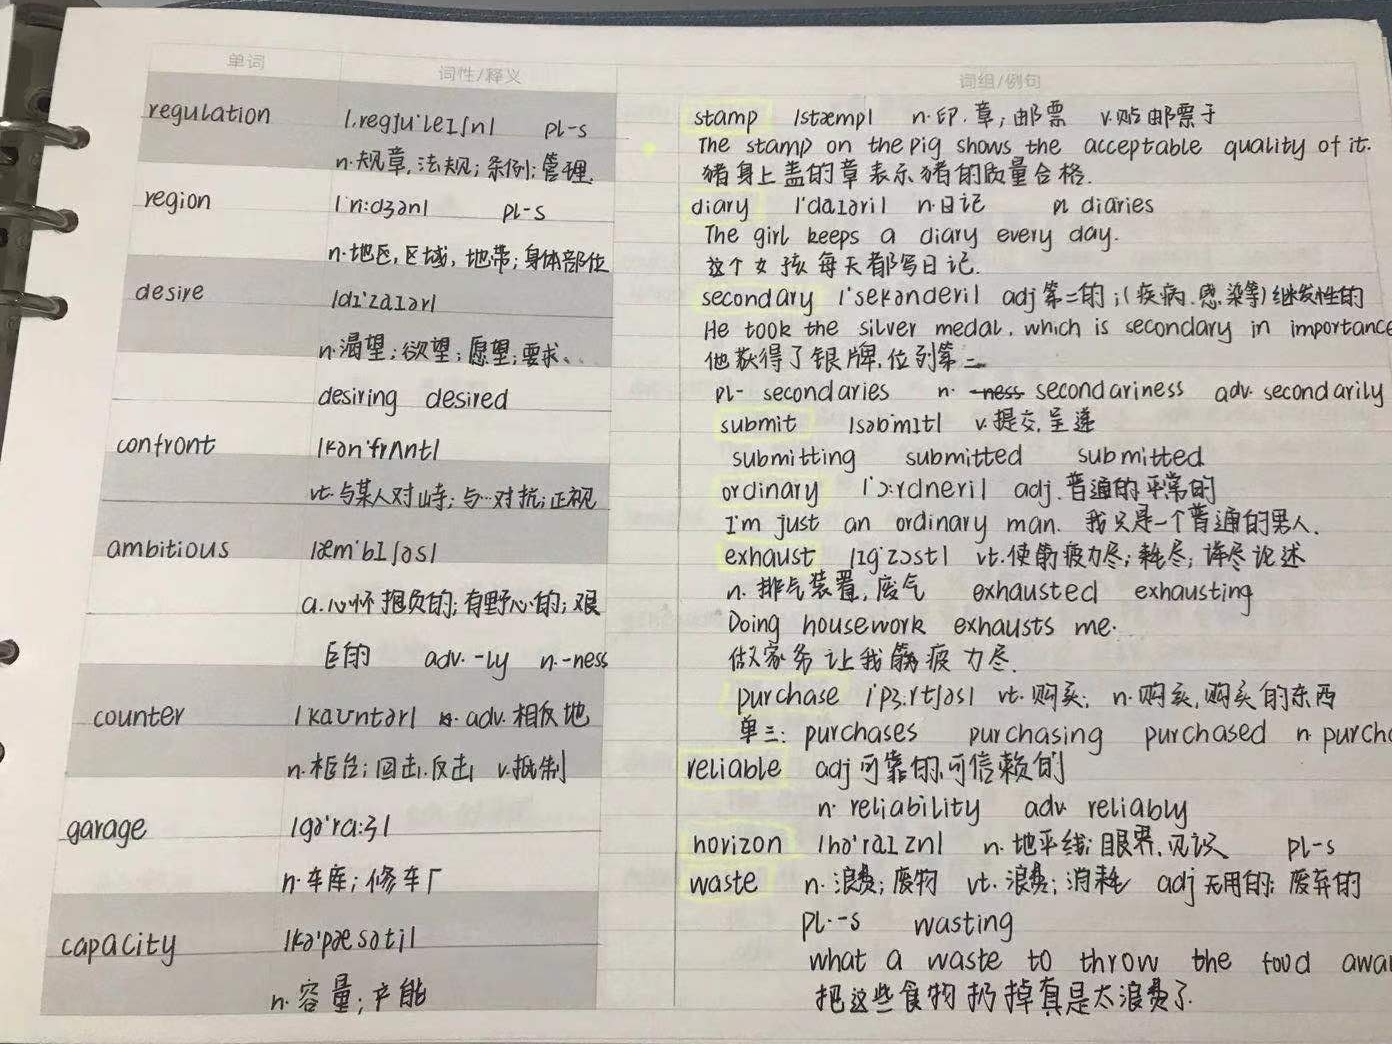 单词 词性/释义 词组/例句
regulation /ˌregjuˈleɪʃn/ pl-s
n.规章,法规;条例;管理.
region /ˈriːdʒən/ pl-s
n.地区,区域,地带;身体部位
desire /dɪˈzaɪər/
n.渴望;欲望;愿望;要求...
desiring desired
confront /kənˈfrʌnt/
vt.与某人对峙;与…对抗;正视
ambitious /æmˈbɪʃəs/
a.心怀抱负的;有野心的;艰
巨的 adv.-ly n.-ness
counter /kaʊntər/ adv.相反地
n.柜台;回击.反击 v.抵制
garage /ɡəˈrɑːʒ/
n.车库;修车厂
capacity /kəˈpæsəti/
n.容量;产能
stamp /stæmp/ n.印.章;邮票 v.贴邮票于
The stamp on the pig shows the acceptable quality of it.
猪身上盖的章表示猪的质量合格.
diary /ˈdaɪəri/ n.日记 pl diaries
The girl keeps a diary every day.
这个女孩每天都写日记.
secondary /ˈsekənderi/ adj第二的;(疾病.感染等)继发性的
He took the silver medal, which is secondary in importance
他获得了银牌,位列第二
pl- secondaries n. -ness secondariness adv. secondarily
submit /səbmɪt/ v.提交,呈递
submitting submitted submitted
ordinary /ˈɔːrdneri/ adj.普通的平常的
I'm just an ordinary man. 我只是一个普通的男人.
exhaust /ɪɡˈzɔst/ vt.使筋疲力尽;耗尽;详尽论述
n.排气装置,废气 exhausted exhausting
Doing housework exhausts me.
做家务让我筋疲力尽.
purchase /ˈpɜːrtʃəs/ vt.购买; n.购买,购买的东西
单三: purchases purchasing purchased n purcha
reliable adj可靠的,可信赖的
n. reliability adv reliably
horizon /həˈraɪzn/ n.地平线;眼界,见识 pl-s
waste n.浪费;废物 vt.浪费;消耗 adj无用的;废弃的
pl.-s wasting
what a waste to throw the food awa
把这些食物扔掉真是太浪费了.